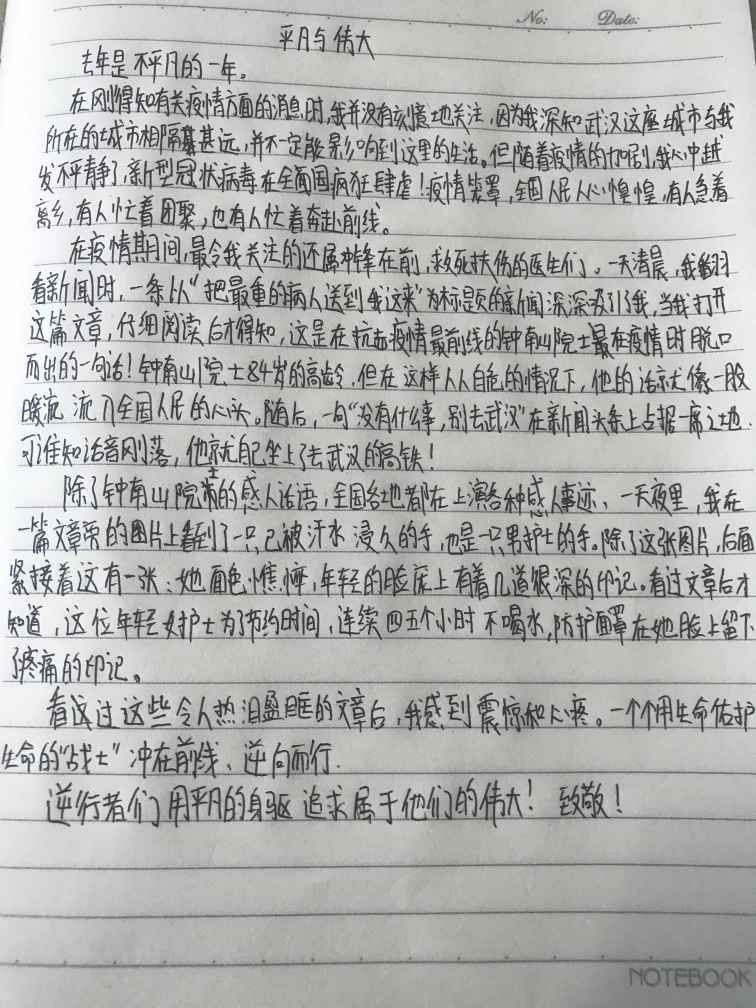 No: Date:
平凡与伟大
去年是不平凡的一年。
在刚得知有关疫情方面的消息时,我并没有刻意地关注,因为我深知武汉这座城市与我
所在的城市相隔甚远,并不一定能影响到这里的生活。但随着疫情的加剧,我心中越
发不平静了,新型冠状病毒在全国疯狂肆虐!疫情笼罩,全国人民人心惶惶,有人急着
离乡,有人忙着团聚,也有人忙着奔赴前线。
在疫情期间,最令我关注的还属冲锋在前,救死扶伤的医生们。一天清晨,我翻
看新闻时,一条以“把最重的病人送到我这来”为标题的新闻深深吸引了我,当我打开
这篇文章,仔细阅读后才得知,这是在抗击疫情最前线的钟南山院士最在疫情时脱口
而出的一句话!钟南山院士84岁的高龄,但在这样人人自危的情况下,他的话就像一股
暖流流入全国人民的心头。随后,一句“没有什么事,别去武汉”在新闻头条上占据一席之地.
可谁知话音刚落,他就自己坐上了去武汉的高铁!
除了钟南山院士的感人话语,全国各地都在上演各种感人事迹、一天夜里,我在
一篇文章旁的图片上看到了一只已被汗水浸久的手,也是一只男护士的手。除了这张图片,后面
紧接着这有一张:她面色憔悴,年轻的脸庞上有着几道很深的印记。看过文章后才
知道,这位年轻女护士为了节约时间,连续四五个小时不喝水,防护面罩在她脸上留下
了疼痛的印记。
看过过这些令人热泪盈眶的文章后,我感到震惊和心疼。一个个用生命佑护
生命的“战士”冲在前线、逆向而行.
逆行者们用平凡的身驱追求属于他们的伟大!致敬!
NOTEBOOK